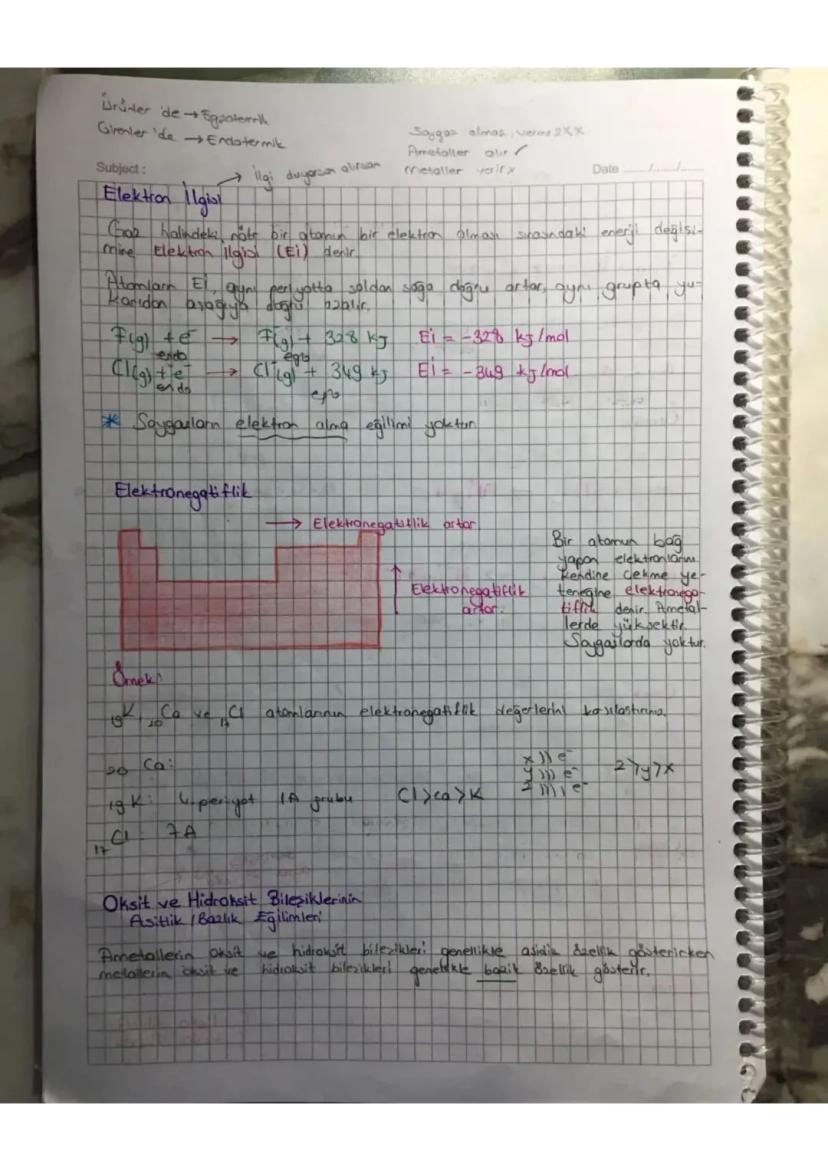 Ürünler'de → Egzotermik
Girenler'de → Endotermik
Soygaz almaz, verme 2XX
Ametaller alır ✓
Metaller verir x
Subject :
Date ....../....../......
→ ilgi duyarsan alırsan
Elektron İlgisi
Gaz halindeki nötr bir atomun bir elektron alması sırasındaki enerji değişi-
mine Elektron ilgisi (Ei) denir
Atomların Ei, aynı periyotta soldan sağa doğru artar, aynı grupta yu-
karıdan aşağıya doğru azalır.
F(g) + e⁻ → F(g) + 328 kJ Ei = -328 kJ/mol
endo egzo
Cl(g) + e⁻ → Cl⁻(g) + 349 kJ Ei = -349 kJ/mol
endo
* Soygazların elektron alma eğilimi yoktur
Elektronegatiflik
→ Elektronegatiflik artar
↑ Elektronegatiflik
artar.
Bir atomun bağ
yapan elektronlarını
kendine çekme ye-
teneğine elektronega-
tiflik denir. Ametal-
lerde yüksektir.
Soygazlarda yoktur.
Örnek:
₁₉K, ₂₀Ca ve ₁₇Cl atomlarının elektronegatiflik değerlerini karşılaştırınız.
₂₀Ca:
₁₉K: 4.periyot 1A grubu Cl>Ca>K
₁₇Cl: 7A
x )) e⁻
y ))) e⁻
z )))) e⁻
z>y>x
Oksit ve Hidroksit Bileşiklerinin
Asitlik / Bazlık Eğilimleri
Ametallerin oksit ve hidroksit bileşikleri genellikle asidik özellik gösterirken
metallerin oksit ve hidroksit bileşikleri genellikle bazik özellik gösterir.